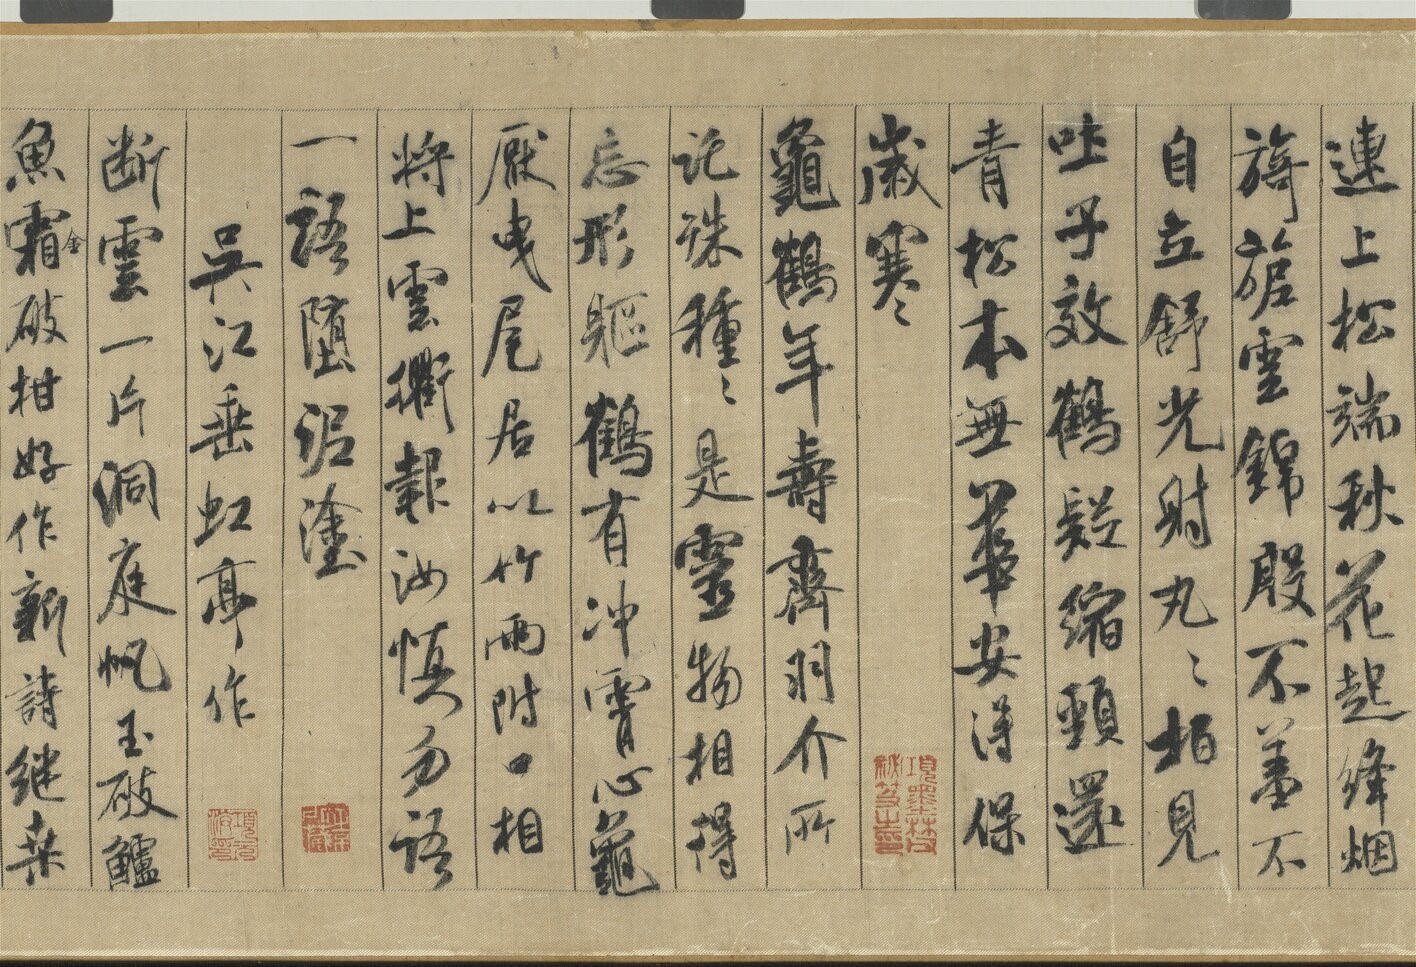 連上松端秋花起絳烟
旖旎雲錦殷不羞不
自立舒光射丸〻柏見
吐子效鶴疑縮頸還
青松本無華安得保
歲寒〻
龜鶴年壽齊羽介所
託殊種〻是靈物相得
忘形軀鶴有冲霄心龜
厭曳尾居以竹兩附口相
將上雲衢報汝慎勿語
一語墮泥塗
吳江垂虹亭作
斷雲一片洞庭帆玉破鱸
魚霜金破柑好作新詩継桒
項墨林父
祕笈之印